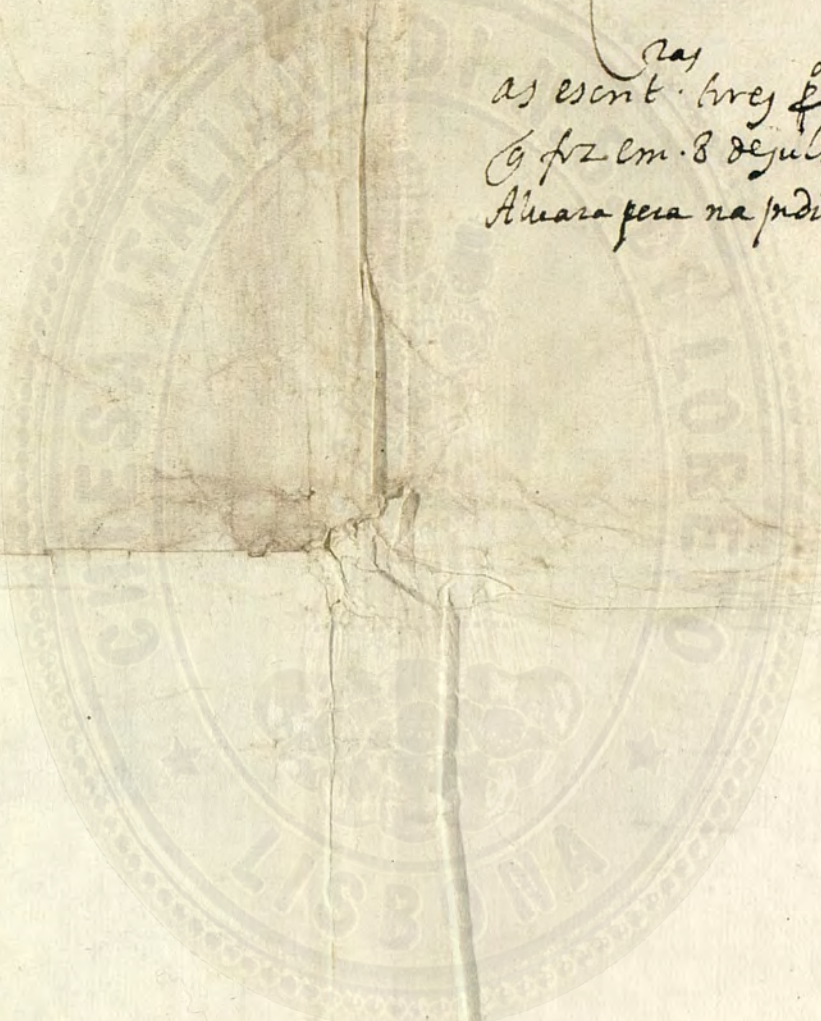 ras
as escrit.
q fez em .8 de Jul
Alvara pera na
CHIESA ITALIANA DI N. S. DI LORETO
LISBONA